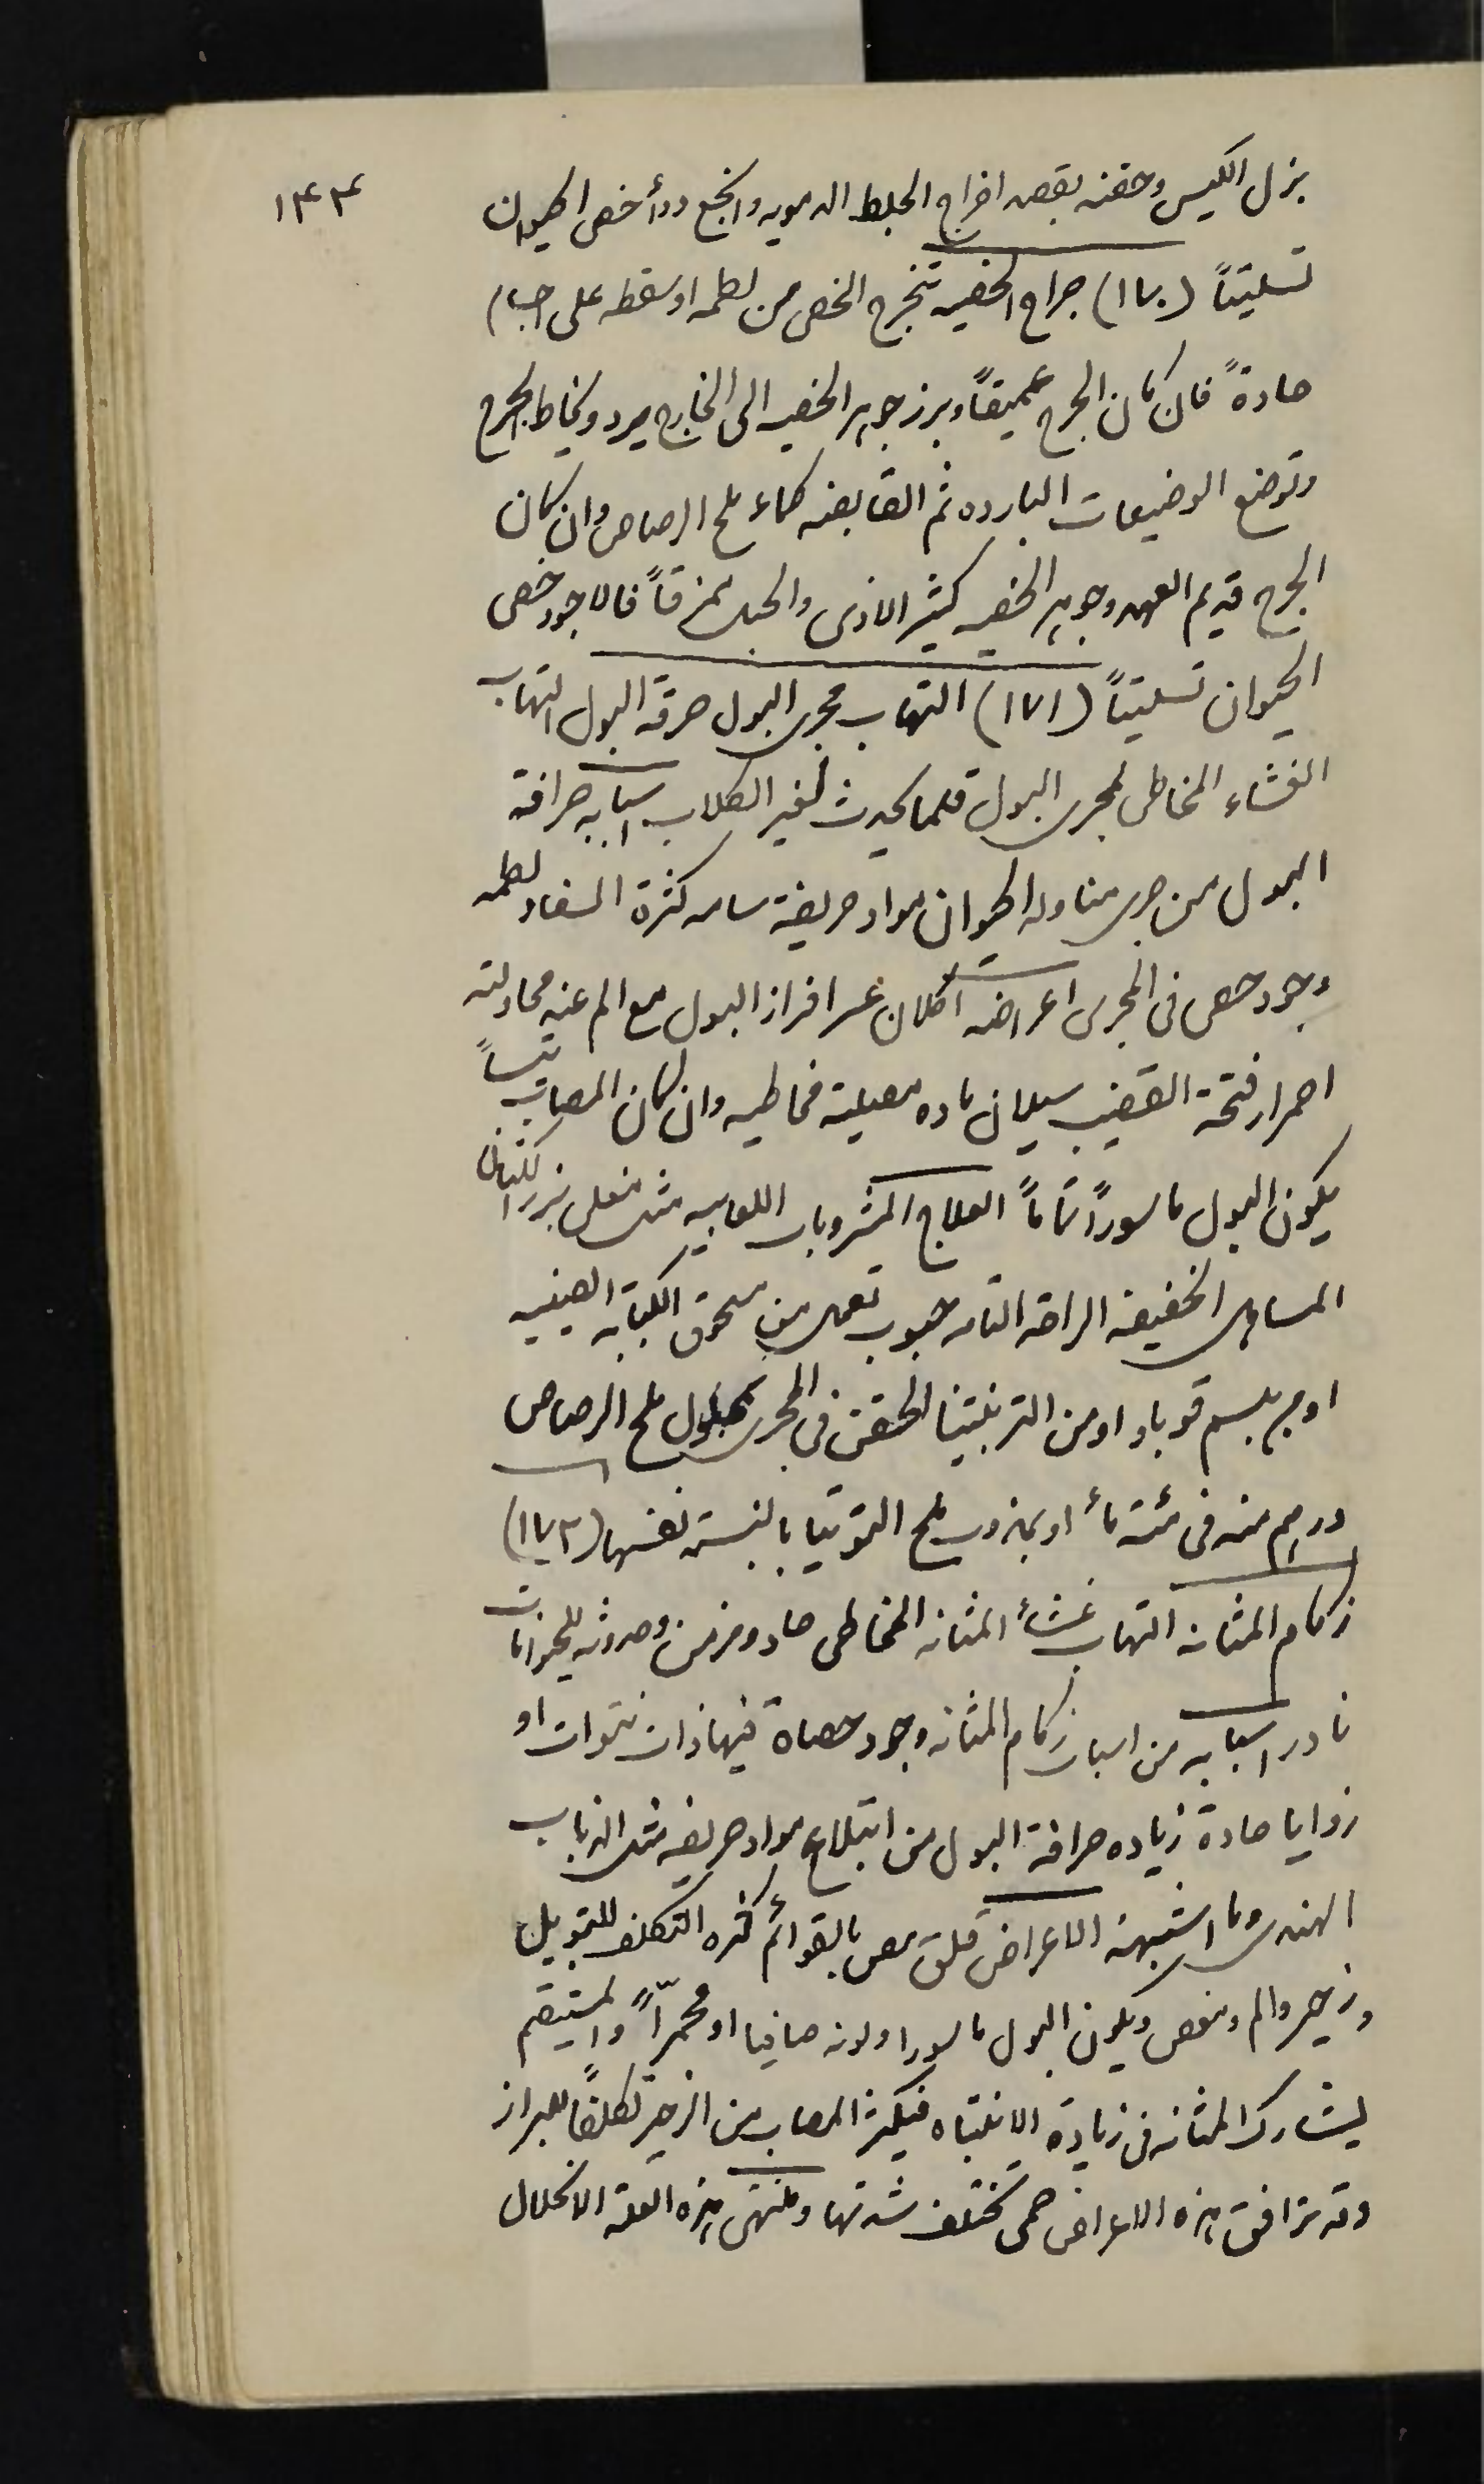 ١٣٤
بزل الكيس وحقنه بقصد اخراج الجلط الدمويه وانجع دوأ خصى الحيوان
تسليتاً (١٧٠) جراح الخصيه تنجرح الخصى من لطمه او سقطه على اجسام
حادةً فان كان الجرح عميقاً وبرز جوهر الخصيه الى الخارج يرد ويخاط الجرح
وتوضع الوضيعات البارده ثم القابضه كماء ملح الرصاص وان كان
الجرح قديم العهد وجوهر الخصيه كثير الاذى والحبل ممزقاً فالاجود خصى
الحيوان تسليتاً (١٧١) التهاب مجرى البول حرقة البول التهاب
الغشاء المخاطى لمجرى البول قلما يحدث لغير الكلاب اسبابه حرافة
البول من جرى مناولة الحيوان مواد حريفة سامه كثرة السفاد لطمه
وجود حصى فى المجرى اعراضه اكلان عسر افراز البول مع الم عند محاولته
احمرار فتحة القضيب سيلان ماده مصلية مخاطيه وان كان المصاب تيساً
يكون البول ماسوراً تماماً العلاج المشروبات اللعابيه مثل مغلى بزر الكتان
المساهل الخفيفه الراحه التامه حبوب تعمل من مسحوق الكبابه الصينيه
او من بلسم قوباو او من التربنتينا الحقن فى المجرى بمحلول ملح الرصاص
درهم منه فى مئة مأ او بمذوب ملح التوتيا بالنسبة نفسها (١٧٢)
زكام المثانه التهاب غشأ المثانه المخاطى حاد ومزمن وحدوثه للحيوانات
نادر اسبابه من اسباب زكام المثانه وجود حصاة فيها ذات نتوات او
زوايا حادة زياده حرافة البول من ابتلاع مواد حريفه مثل الذباب
الهندى وما اشبهه الاعراض قلق مص بالقوائم كثره التكلف للتبويل
وزحير والم ومغص ويكون البول ماسورا ولونه صافيا او محمرّاً والمستقيم
يشارك المثانه فى زيادة الانتباه فيكثر المصاب من الزحير تكلفاً للبراز
وقد ترافق هذه الاعراض حمى تختلف شدتها ومنتهى هذه العلة الانحلال